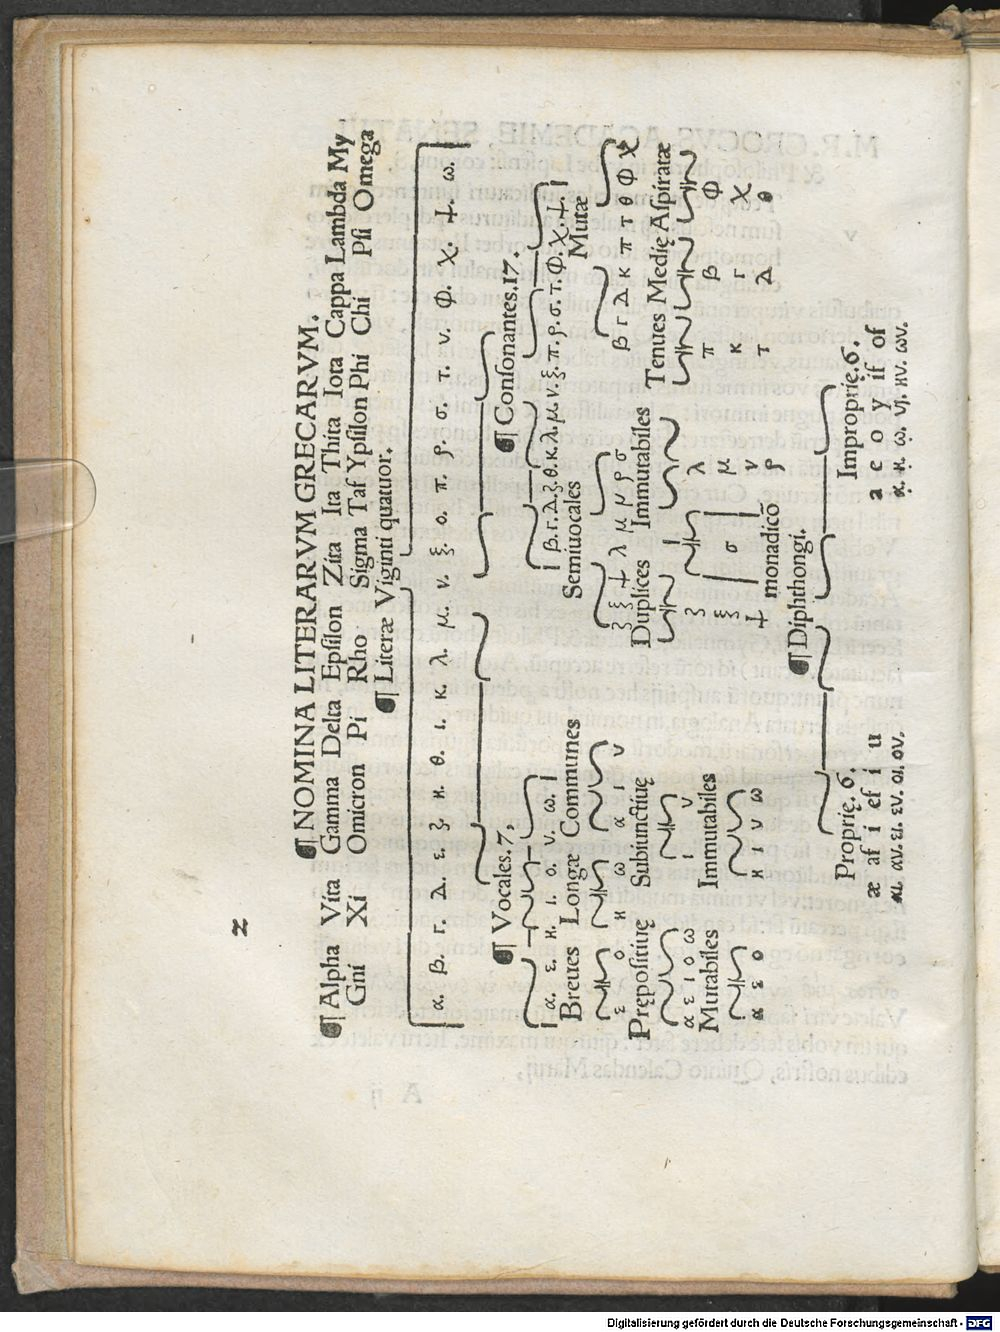 ¶ NOMINA LITERARVM GRECARVM.
¶ Alpha Vita Gamma Delta Epſilon Zita Ita Thita Iota Cappa Lambda My
Gni Xi Omicron Pi Rho Sigma Taf Ypſilon Phi Chi Pſi Omega
¶ Literæ Viginti quatuor.
α. β. γ. Δ. ε. ξ. κ. θ. ι. κ. λ. μ. ν. ξ. ο. π. ρ. σ. τ. υ. Φ. χ. ψ. ω.
¶ Vocales.7,
¶ Conſonantes.17.
α. ε. κ. ι. ο. υ. ω.
β. γ. Δ. ξ. θ. κ. λ. μ. ν. ξ. π. ρ. σ. τ. Φ. χ. ψ.
Breues Longæ Communes
Semiuocales
Mutæ
ε ο κ ω α ι υ
ξ ξ ψ λ μ μ ρ σ
β γ Δ κ π τ θ Φ χ
Prępoſitiuę Subiunctiuę
Duplices Immutabiles
Tenues Medię Aſpiratæ
α ε ι ο ω ι υ
ξ λ
π β Φ
Mutabiles Immutabiles
ξ σ μ
κ γ χ
α ε ο κ ι υ ω
ψ ν
τ Δ θ
monadicō ρ
¶ Diphthongi.
Proprię. 6.
Improprię.6.
æ af i ef i u
a e o y if of
αι. αυ. ει. ευ. οι. ου.
α. κ. ω. υι. κυ. ωυ.
Digitalisierung gefördert durch die Deutsche Forschungsgemeinschaft - DFG